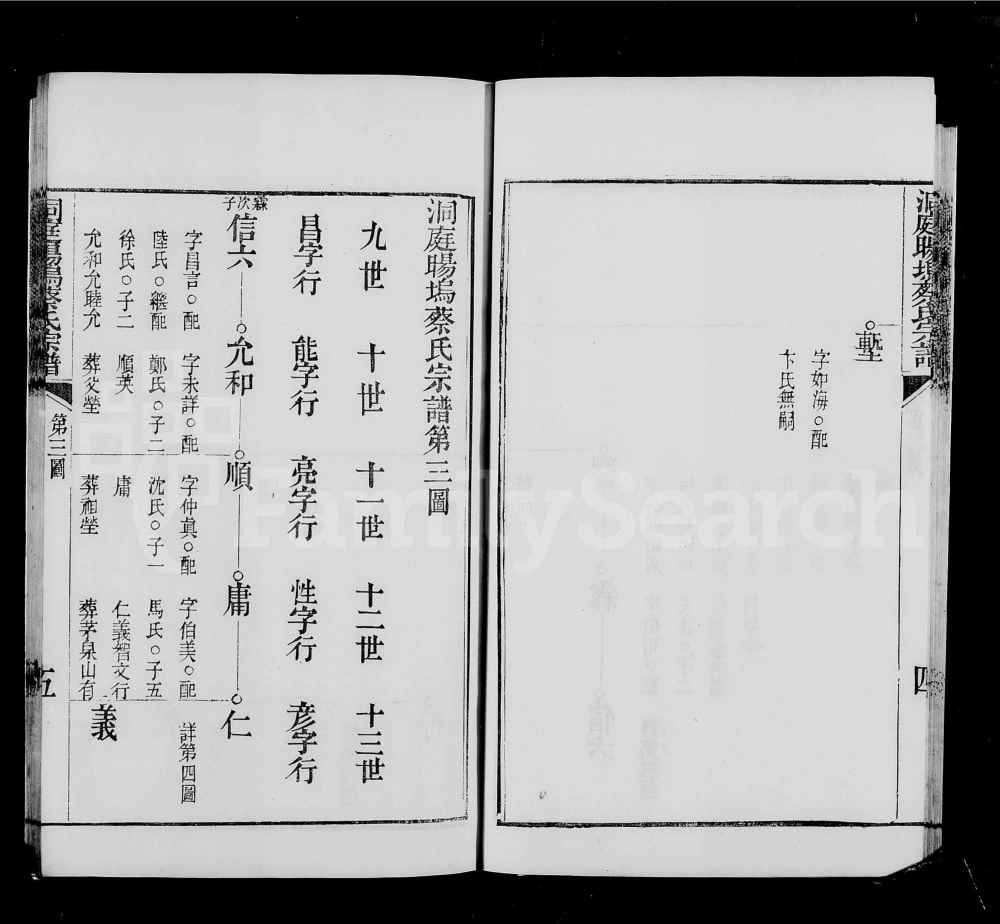 洞庭暘塢蔡氏宗譜
四
塹
字如海○配
卞氏無嗣
洞庭暘塢蔡氏宗譜第三圖
九世 十世 十一世 十二世 十三世
昌字行 能字行 亮字行 性字行 彥字行
霖次子
信六 允和 順 庸 仁
字昌言○配 字未詳○配 字仲眞○配 字伯美○配 詳第四圖
陸氏○繼配 鄭氏○子二 沈氏○子一 馬氏○子五
徐氏○子二 順英 庸 仁義智文行
允和允睦允 葬父塋 葬祖塋 葬茅泉山有
義
洞庭暘塢蔡氏宗譜 第三圖 五
FamilySearch